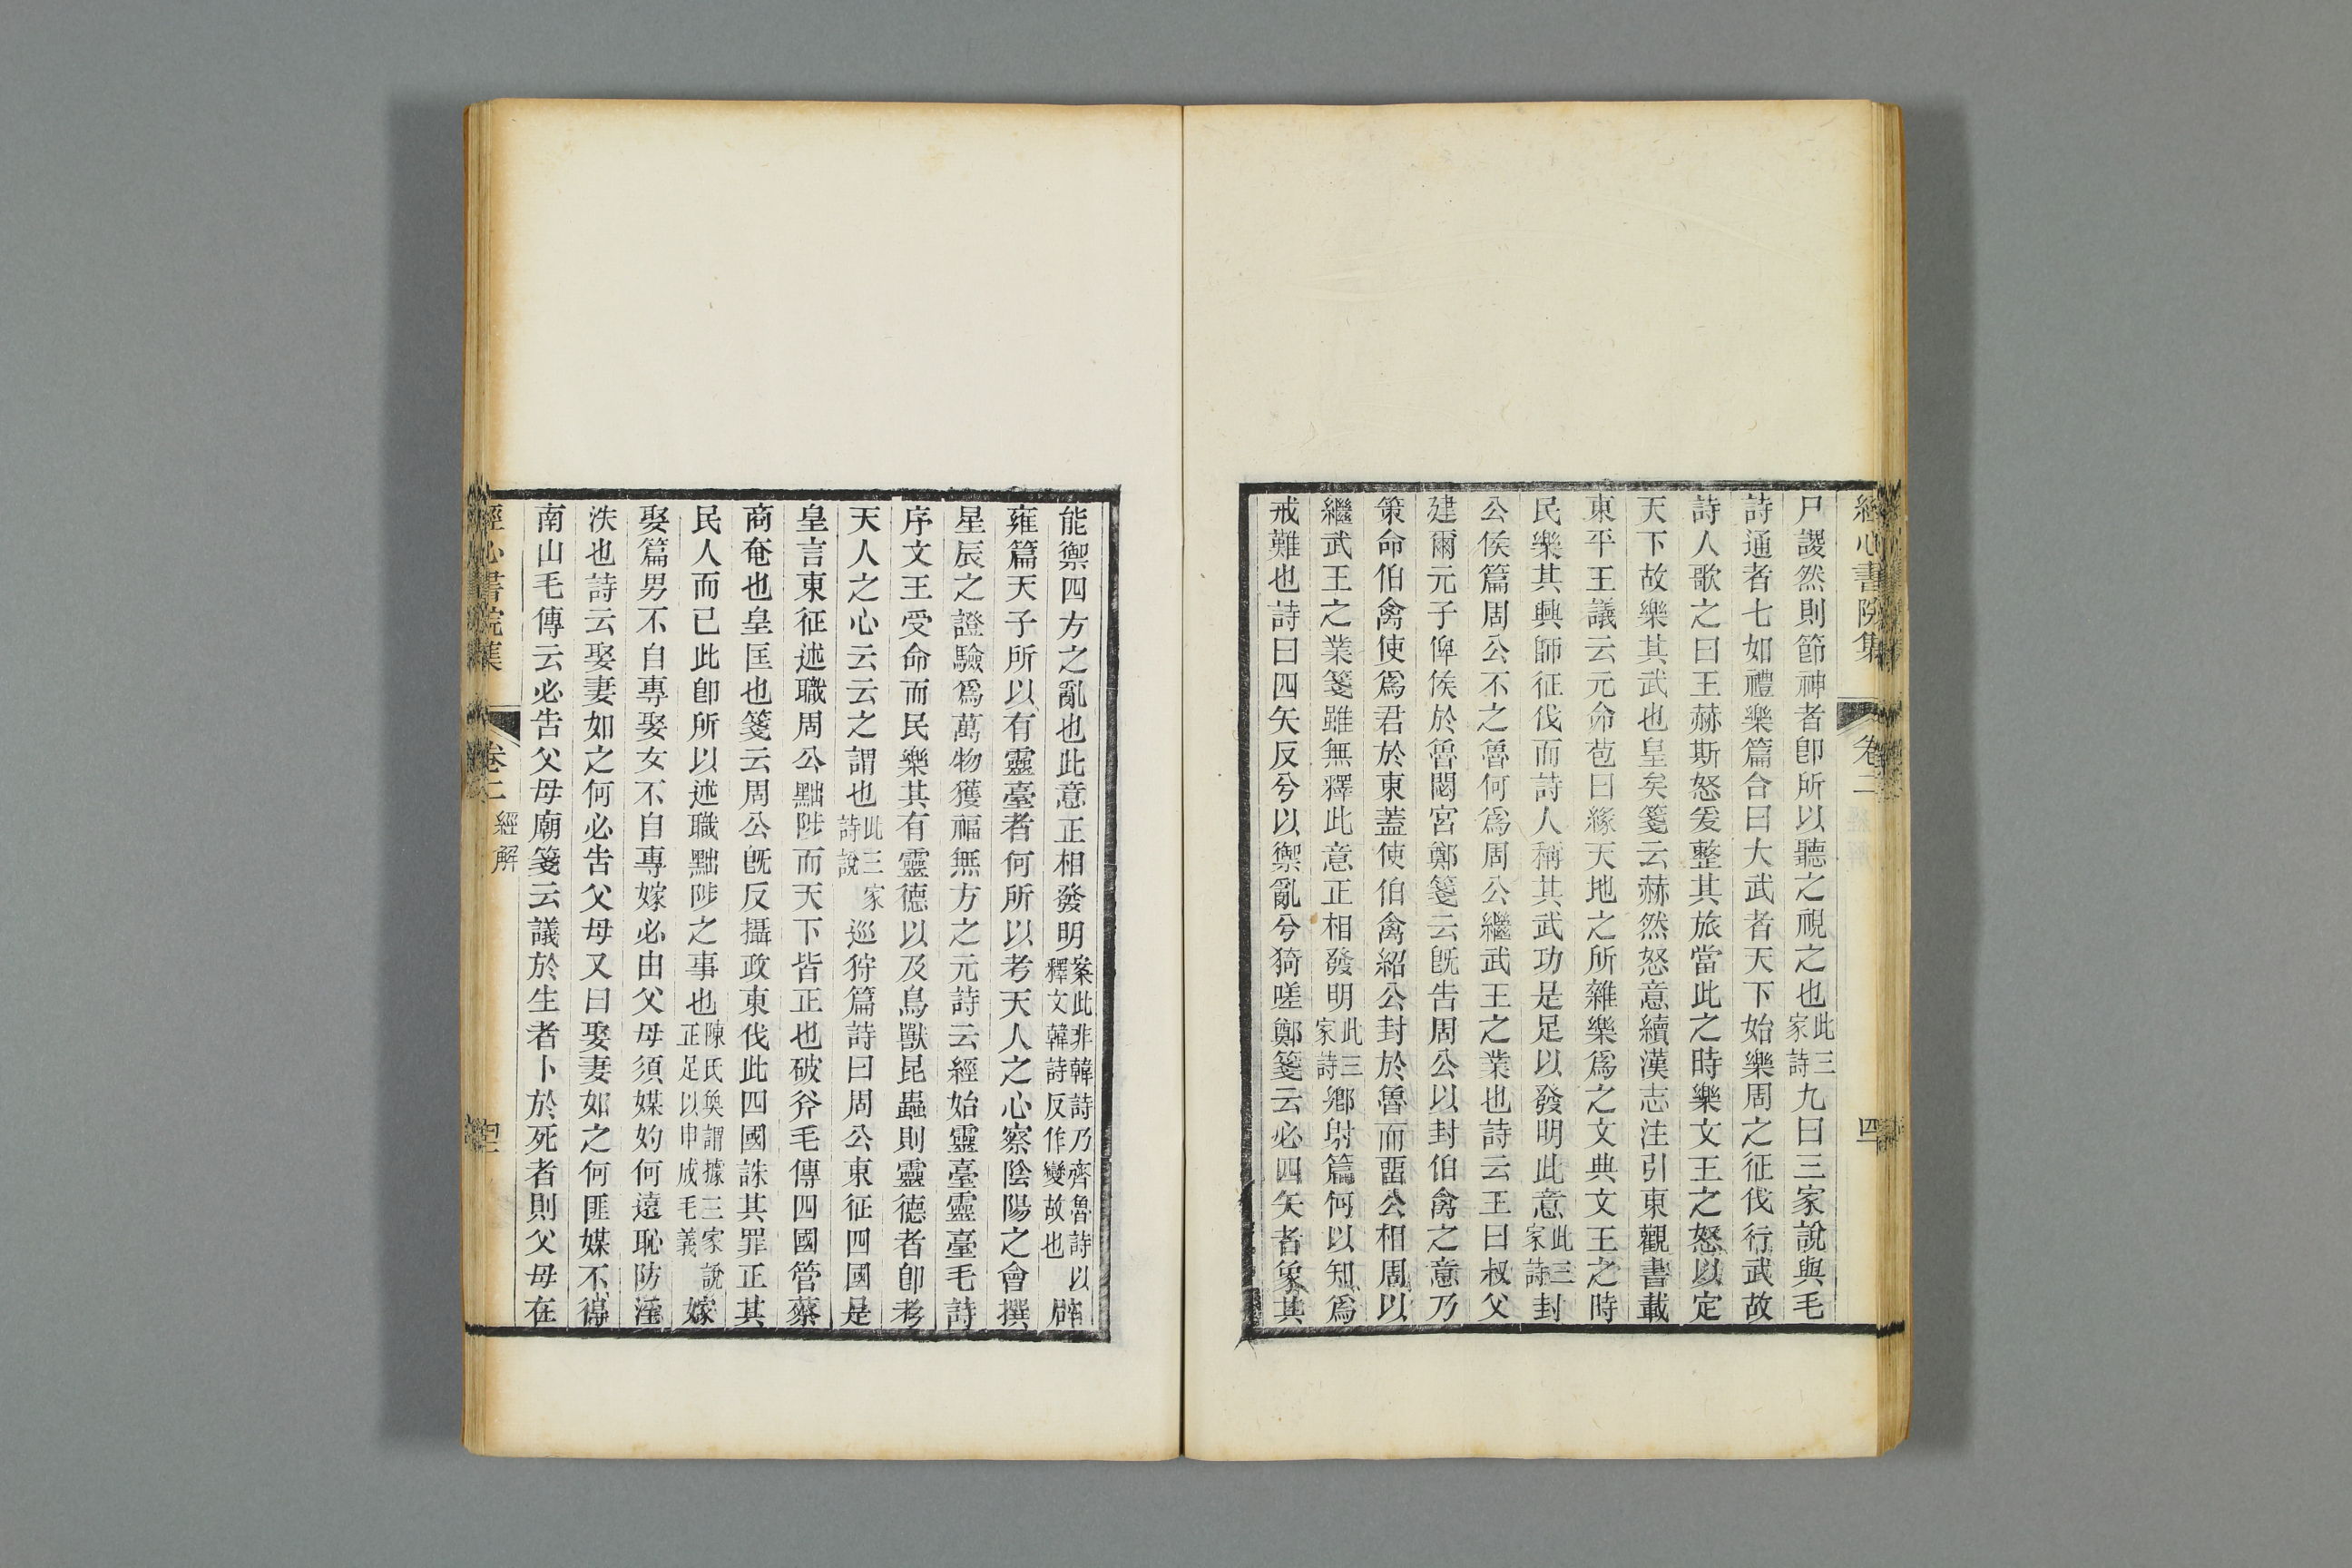 經心書院集 卷二 四
尸謖然則節神者卽所以聽之視之也此三家詩九曰三家說與毛
詩通者七如禮樂篇合曰大武者天下始樂周之征伐行武故
詩人歌之曰王赫斯怒爰整其旅當此之時樂文王之怒以定
天下故樂其武也皇矣箋云赫然怒意續漢志注引東觀書載
東平王議云元命苞曰緣天地之所雜樂爲之文典文王之時
民樂其興師征伐而詩人稱其武功是足以發明此意此三家詩封
公侯篇周公不之魯何爲周公繼武王之業也詩云王曰叔父
建爾元子俾侯於魯閟宮鄭箋云旣吿周公以封伯禽之意乃
策命伯禽使爲君於東蓋使伯禽紹公封於魯而畱公相周以
繼武王之業箋雖無釋此意正相發明此三家詩鄕射篇何以知爲
戒難也詩曰四矢反兮以禦亂兮猗嗟鄭箋云必四矢者象其
能禦四方之亂也此意正相發明案此非韓詩乃齊魯詩以釋文韓詩反作變故也辟
雍篇天子所以有靈臺者何所以考天人之心察陰陽之會撰
星辰之證驗爲萬物獲福無方之元詩云經始靈臺靈臺毛詩
序文王受命而民樂其有靈德以及鳥獸昆蟲則靈德者卽考
天人之心云云之謂也此三家詩說巡狩篇詩曰周公東征四國是
皇言東征述職周公黜陟而天下皆正也破斧毛傳四國管蔡
商奄也皇匡也箋云周公旣反攝政東伐此四國誅其罪正其
民人而已此卽所以述職黜陟之事也陳氏奐謂據三家說正足以申成毛義嫁
娶篇男不自專娶女不自專嫁必由父母須媒妁何遠恥防淫
泆也詩云娶妻如之何必吿父母又曰娶妻如之何匪媒不得
南山毛傳云必吿父母廟箋云議於生者卜於死者則父母在
經心書院集 卷二 經解 四